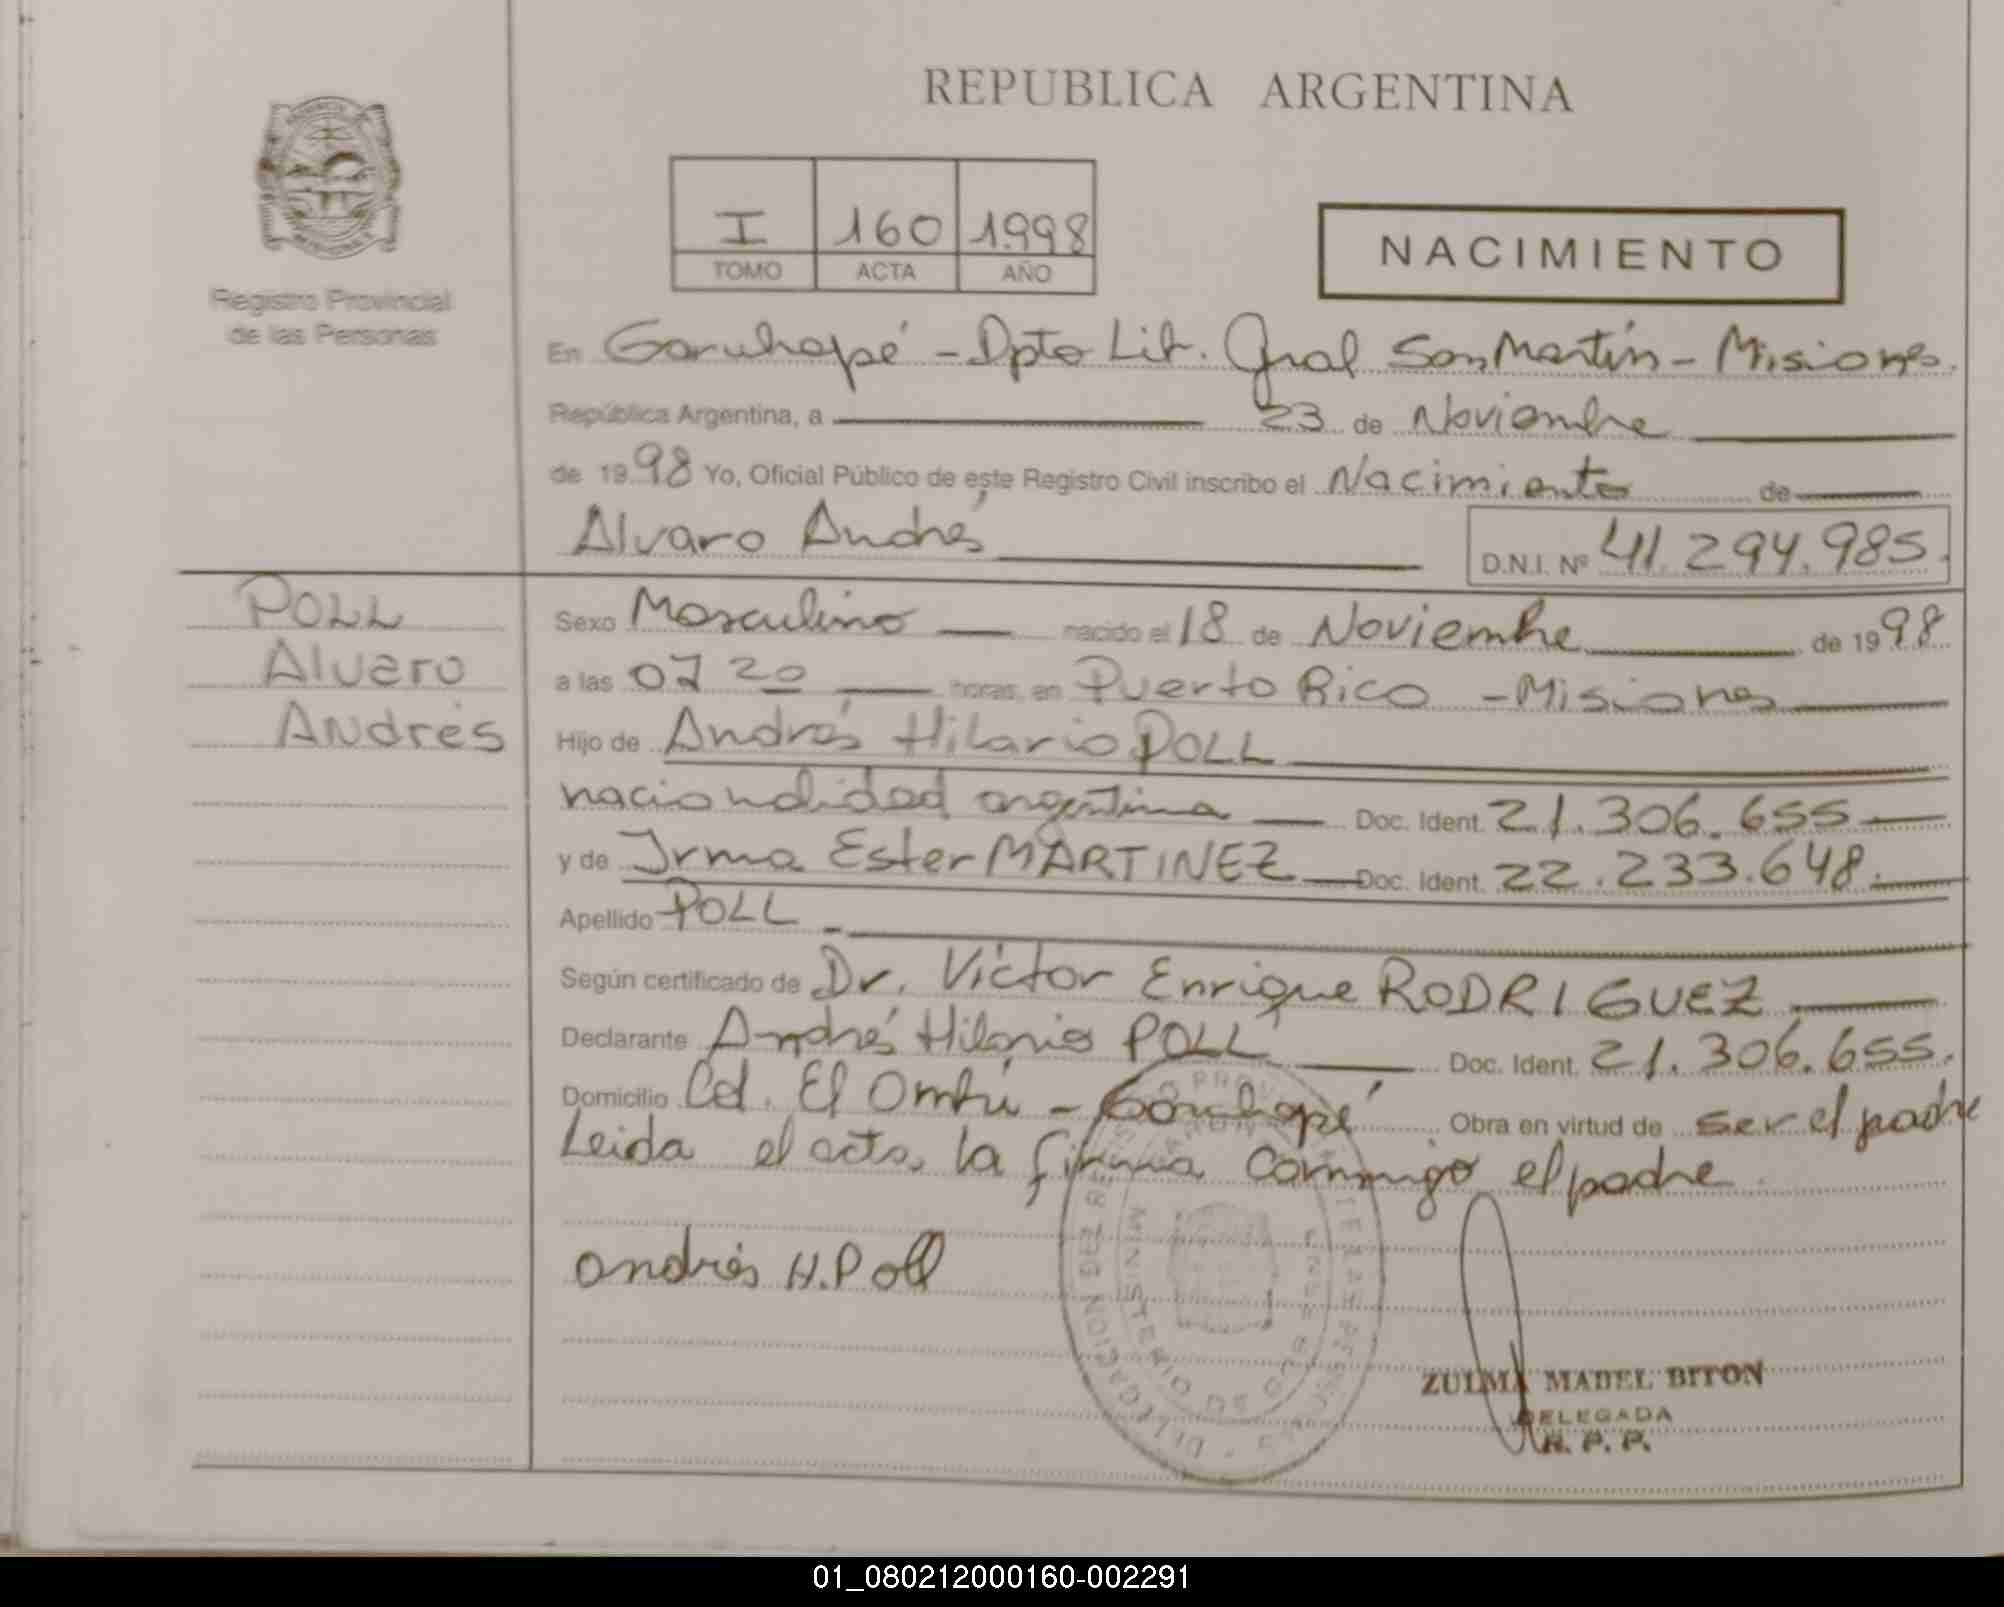 REPUBLICA ARGENTINA
Registro Provincial
de las Personas
I 160 1998
TOMO ACTA AÑO
NACIMIENTO
En Garuhapé - Dpto Lib. Gral San Martín - Misiones.
República Argentina, a 23 de Noviembre
de 1998 Yo, Oficial Público de este Registro Civil inscribo el Nacimiento de
Alvaro Andrés D.N.I. Nº 41.294.985.
POLL
Alvaro
Andrés
Sexo Masculino nacido el 18 de Noviembre de 1998
a las 07 20 horas, en Puerto Rico - Misiones
Hijo de Andrés Hilario POLL
nacionalidad argentina Doc. Ident. 21.306.655
y de Irma Ester MARTINEZ Doc. Ident. 22.233.648.
Apellido POLL
Según certificado de Dr. Victor Enrique RODRIGUEZ
Declarante Andrés Hilario POLL Doc. Ident. 21.306.655.
Domicilio Col. El Ombú - Garuhapé Obra en virtud de ser el padre
Leida el acta, la firma conmigo el padre
Andrés H. Poll
DELEGACION
MINISTERIO DE
ZULMA MABEL BITON
DELEGADA
R. P. P.
01_080212000160-002291